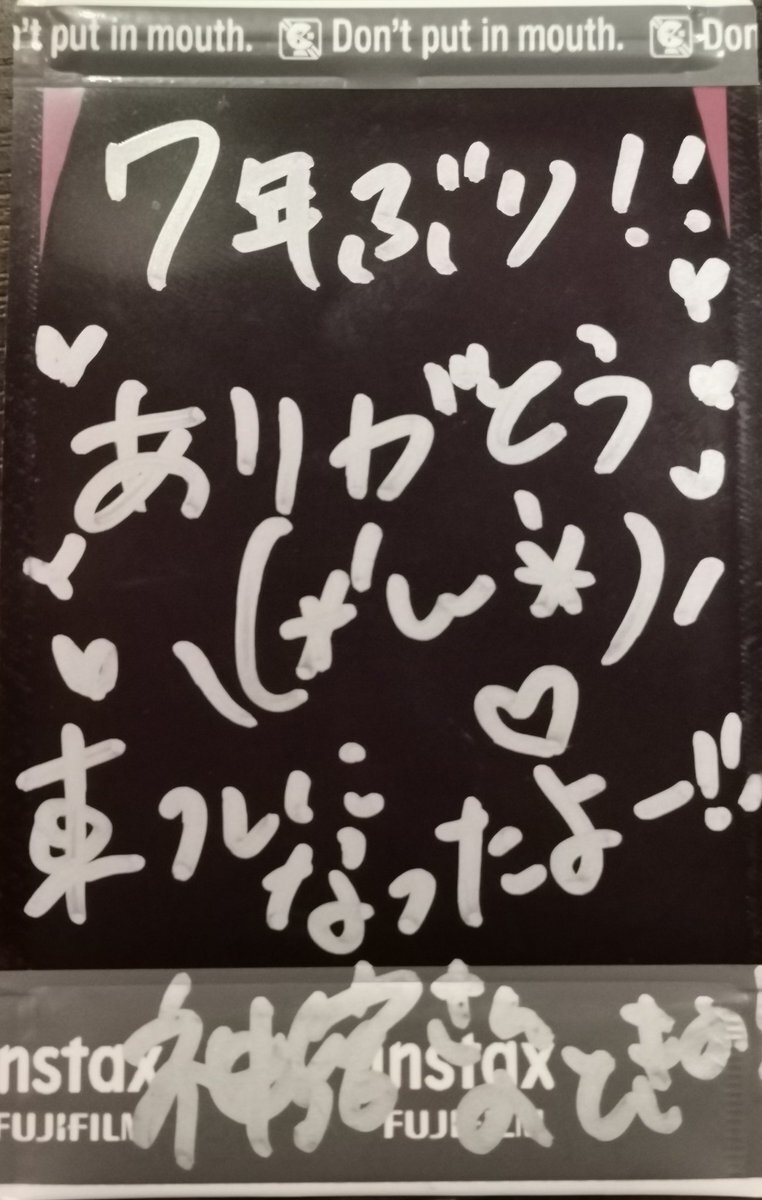 't put in mouth. Don't put in mouth. Don
7年ぶり!!
ありがとう
東フレに
なったよー!!
神宿
nstax instax
FUJIFILM FUJIFILM